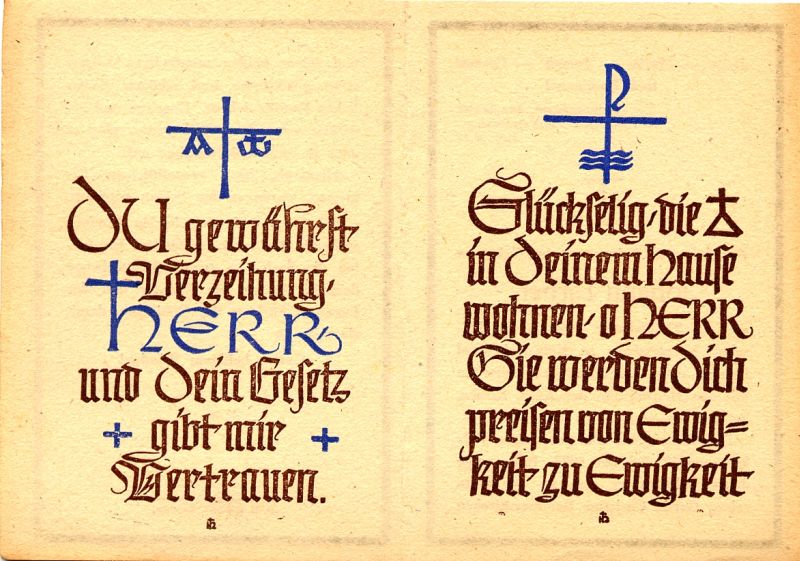 A Ω
DU gewährst
Verzeihung,
HERR,
und dein Gesetz
gibt mir
Vertrauen.
Glückselig, die
in deinem hause
wohnen, o HERR
Sie werden dich
preisen von Ewig=
keit zu Ewigkeit